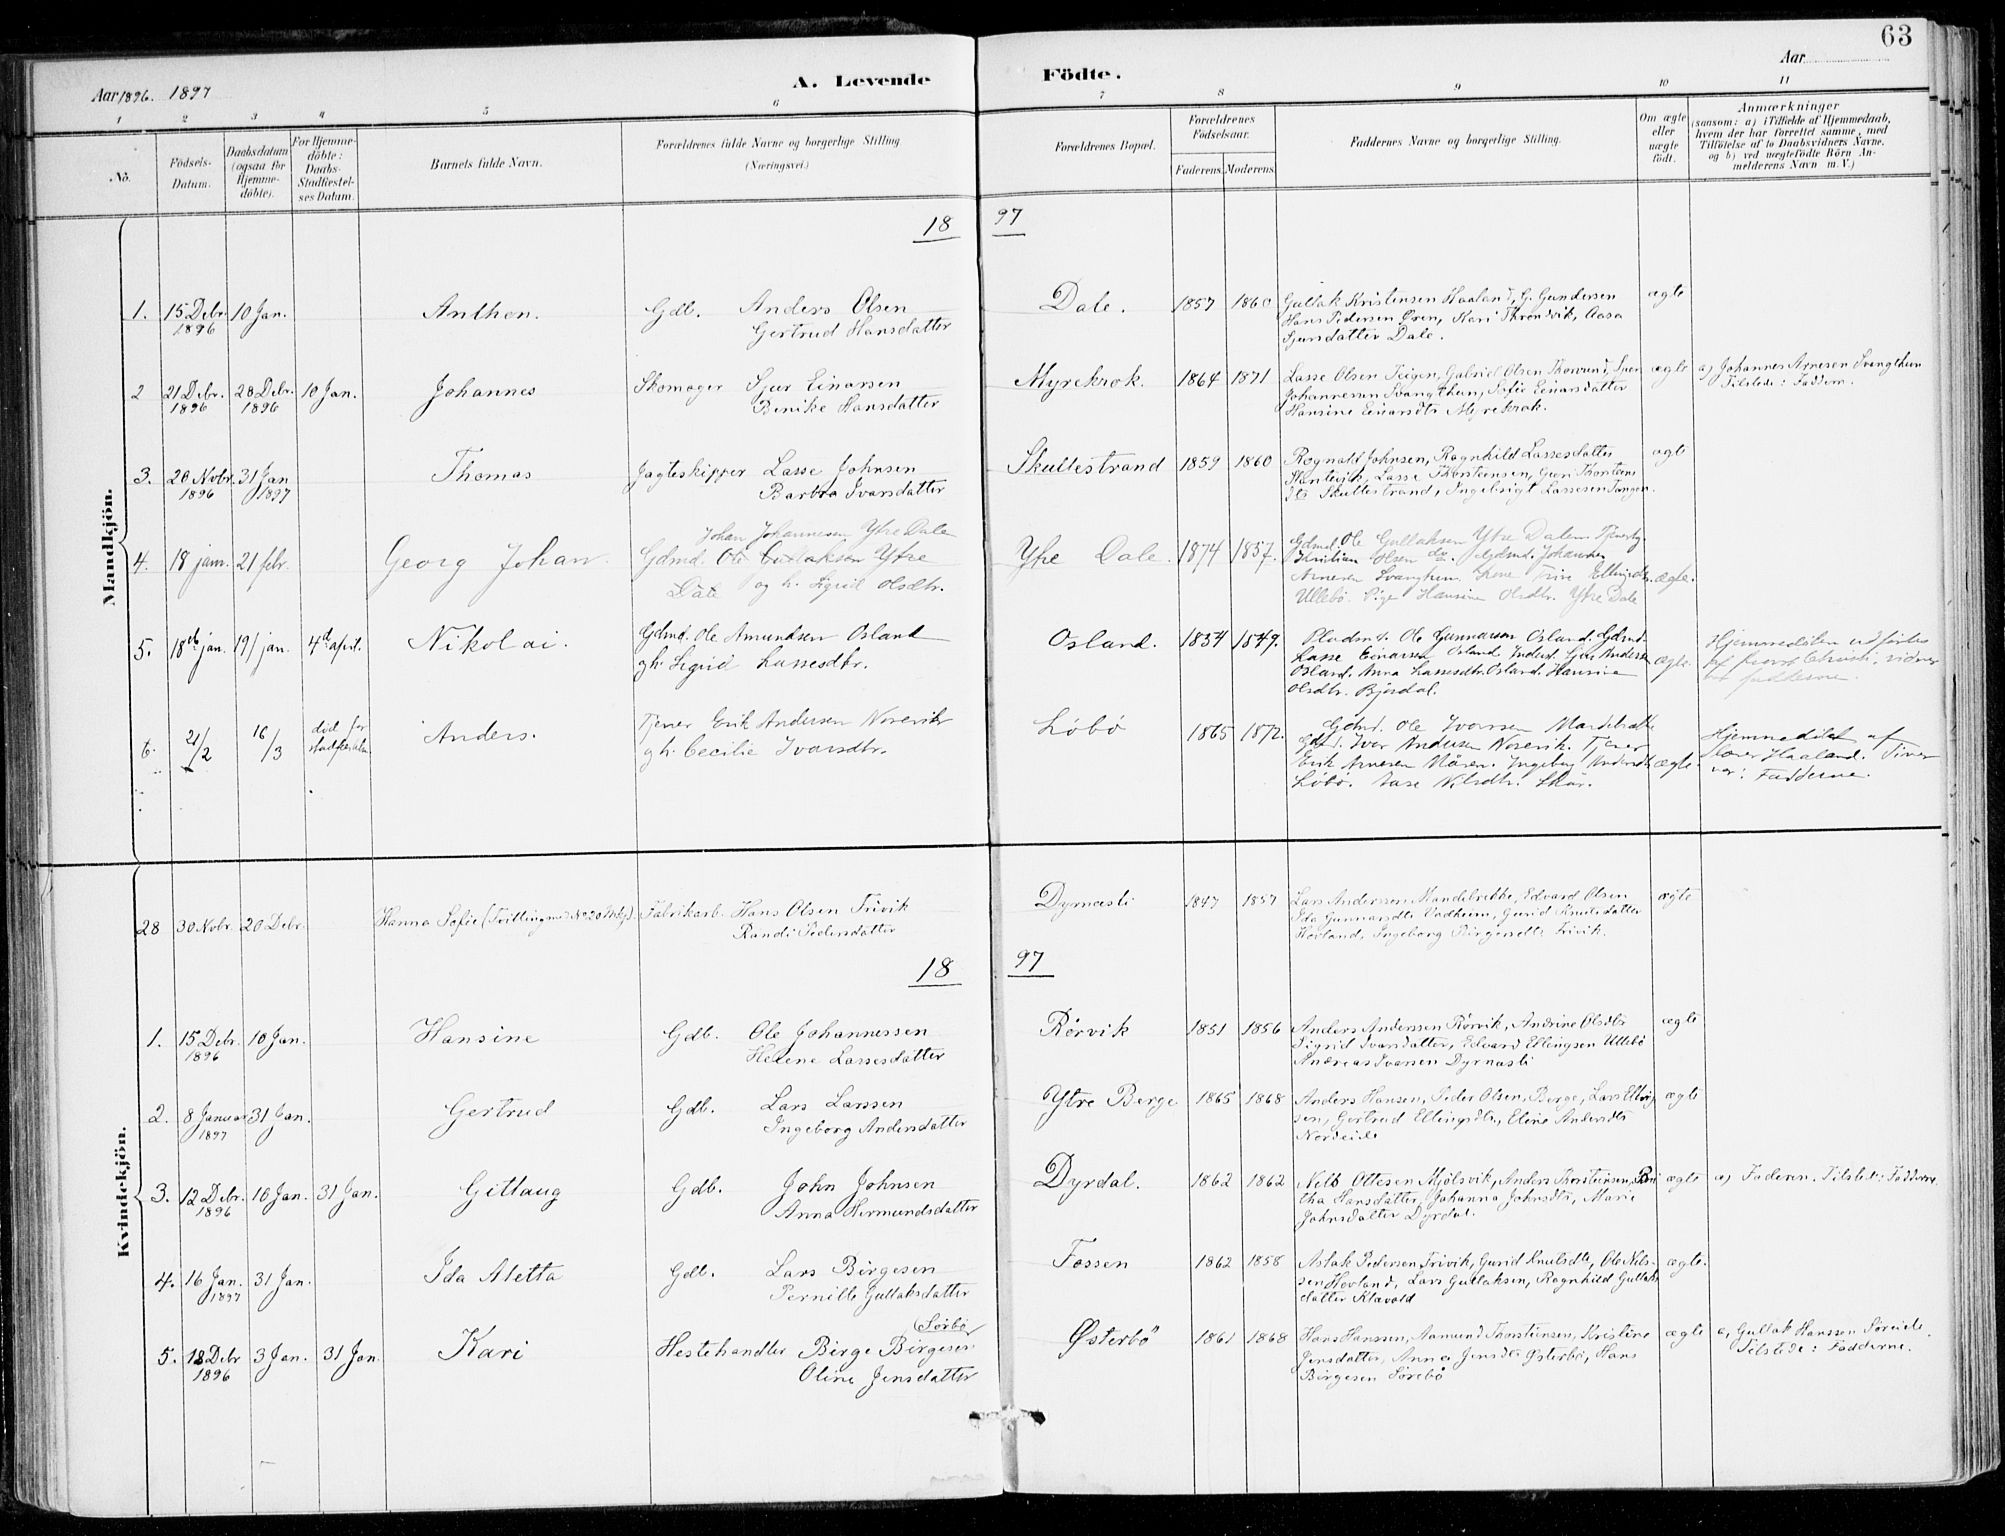 63
Aar 1896. 1897
A. Levende Födte.
Aar
1 2 3 4 5 6 7 8 9 10 11
No.
Födsels-Datum.
Daabsdatum (ogsaa for Hjemme-döbte).
For Hjemme-döbte: Daabs-Stadfæstel-ses Datum.
Barnets fulde Navn.
Forældrenes fulde Navne og borgerlige Stilling (Næringsvei.)
Forældrenes Bopæl.
Forældrenes Födselsaar.
Faderens. Moderens.
Faddernes Navne og borgerlige Stilling.
Om ægte eller uægte födt.
Anmærkninger
(saasom: a) i Tilfælde af Hjemmedaab,
hvem der har forrettet samme, med
Tilföielse af to Daabsvidners Navne,
og b) ved uægtefödte Börn An-
melderens Navn m.V.)
Mandkjön.
18 97
1. 15 Debr. 10 Jan. Anthon. Gdb. Anders Olsen Dale. 1857 1860 Gullak Kristensen Haaland, G. Gundersen ægte
1896 Gertrud Hansdatter Hans Pedersen Øren, Kari Throndvik, Aasa
Sjursdatter Dale.
2 21 Debr. 28 Debr. 10 Jan. Johannes Skomager Sjur Einarsen Myrekrok. 1864 1871 Lasse Olsen Teigen, Gabriel Olsen ægte a) Johannes Arnesen Svangthun
1896 1896 Benike Hansdatter Johannessen Svangthun, Sofie Einarsdatter Tilstede: Faddern.
Hansine Einarsdtr Myrekrok.
3. 20 Novbr. 31 Jan Thomas Jagteskipper Lasse Johnsen Skullestrand 1859 1860 Rognald Johnsen, Ragnhild Lassesdatter ægte
1896 1897 Barbra Ivarsdatter Lasse Thorsteinsen,
Skullestrand, Ingebrigt Lassesen Tangen.
Johan Johannesen Ytre Dale
4. 18 janr. 21 febr. Georg Johan. Gdmd. Ole Gullaksen Ytre Ytre Dale. 1874 1857. Gdmd. Ole Gullaksen Ytre Dale.
Dale og h. Sigrid Olsdtr. Olsen do. Gdmd. Johannes
Arnesen Svangthun. Trine Ellingsdtr. ægte.
Ullebö. Pige Hansine Olsdtr. Ytre Dale
5. 18de jan. 19/ jan. 4de april. Nikolai. Gdmd. Ole Amundsen Osland Osland. 1834 1849. Pladsmd. Ole Gunnarsen Osland. Gdmd. Hjemmedåben udförtes
gh. Sigrid Lassesdtr. Lasse Einarsen Osland Sjur Andersen ægte. af provst Christi, vidner
Osland. Anna Lassesdtr. Osland. Hansine fadderne.
Olsdtr. Bjordal.
6. 21/2 16/3 död för stadfæstelsen Anders. Tjener Erik Andersen Norevik Löbö 1865 1872. Gdmd. Ole Ivarsen
gh. Cecilie Ivarsdtr. Gdmd. Ivar Andersen Norevik. Tjener Hjemmedöbt af
Erik Arnesen Måren. Ingeborg Andersdtr ægte. lærer Haaland.
Löbö. Aase Nilsdtr. Skår. Fadderne.
Kvindekjön.
28 30 Novbr. 20 Debr. Hanna Sofie (Tvilling med No 20 Mkj). Fabrikarb. Hans Olsen Trivik Dyrnæsli 1847 1857 Lars Anderssen Nandebrekke, Edvard Olsen ægte
Randi Pedersdatter Ida Gunnarsdtr Vadheim, Gurid Knutsdatter
Hovland, Ingeborg Birgersdtr Trivik.
18 97
1. 15 Debr. 10 Jan. Hansine Gdb. Ole Johannessen Rörvik 1851 1856 Anders Anderssen Rörvik, Andrine Olsdtr ægte
1896 Helene Lassesdatter Sigrid Ivarsdatter, Edvard Ellingsen Ullebö
Andreas Ivarsen Dyrnæsli
2. 8 Januar 31 Jan. Gertrud Gdb. Lars Larssen Ytre Berge 1865 1868 Anders Hansen, Peder Olsen, Berge, Lars Elling ægte
1897 Ingeborg Andersdatter sen, Gertrud Ellingsdtr, Eline Andersdtr
Nordeide
3. 12 Debr. 16 Jan. 31 Jan. Gittaug Gdb. John Johnsen Dyrdal. 1862 1862 Nels Ottesen Mjölsvik, Anders Thorsteinsen, Bri ægte a) Faderen. Tilstede: Fadderne.
1896 Anna Hermundsdatter tha Hansdatter, Johanna Johnsdtr, Marie
Johnsdatter Dyrdal.
4. 16 Jan. 31 Jan. Ida Aletta Gdb. Lars Birgesen Fossen 1862 1858 Aslak Pedersen Trivik, Gurid Knutsdtr, Ole Nils- ægte.
1897 Pernille Gullaksdatter sen Hovland, Lars Gullaksen, Ragnhild Gullaks
datter Klævold
(Sörbö)
5. 18 Debr 3 Jan. 31 Jan. Kari Hestehandler Birge Birgesen Østerbö 1861 1868 Hans Hanssen, Aamund Thorsteinsen, Kristine ægte a, Gullak Hanssen Söreide.
1896 Oline Jensdatter Jensdatter, Anna Jensdtr Østerbö, Hans Tilstede: Fadderne.
Birgesen Sörebö